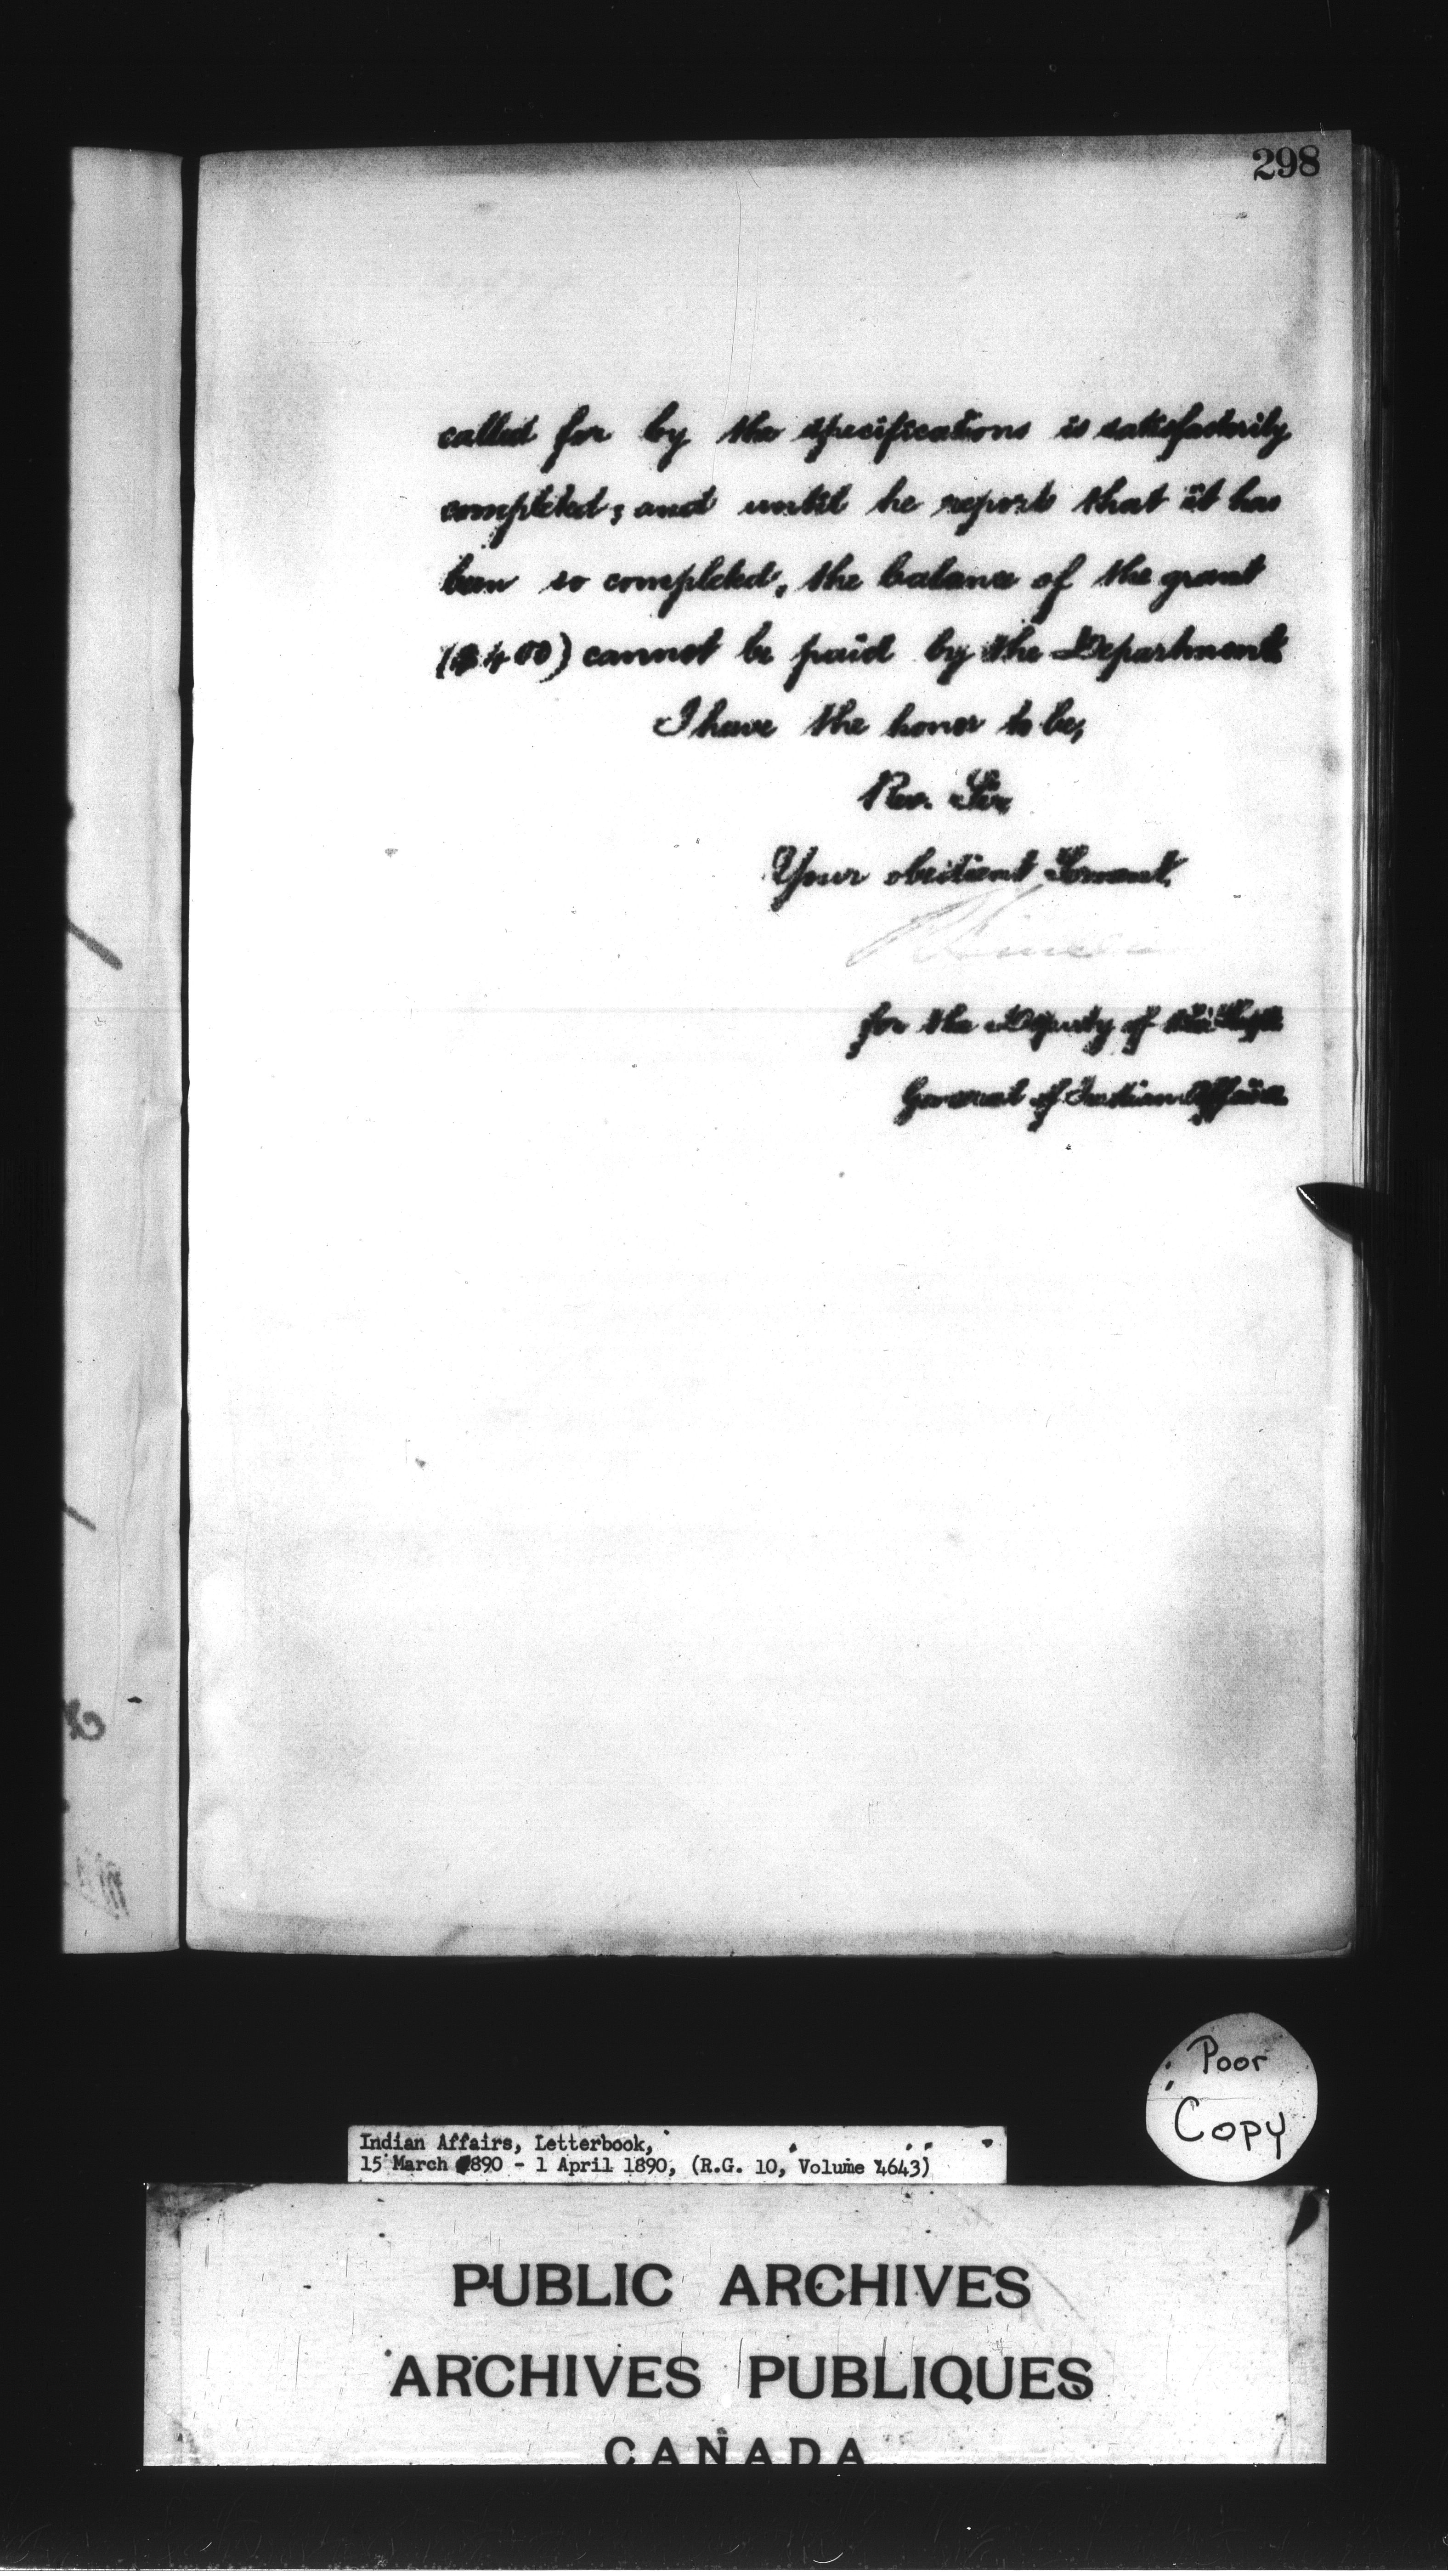 298
called for by the specifications is satisfactorily
completed; and until he reports that it has
been so completed, the balance of the grant
($400) cannot be paid by the Department
I have the honor to be,
Rev. Sir
Your obedient Servant,
for the Deputy of the Supt
General of Indian Affairs
Poor
Copy
Indian Affairs, Letterbook,
15 March 1890 - 1 April 1890, (R.G. 10, Volume 4643)
PUBLIC ARCHIVES
ARCHIVES PUBLIQUES
CANADA